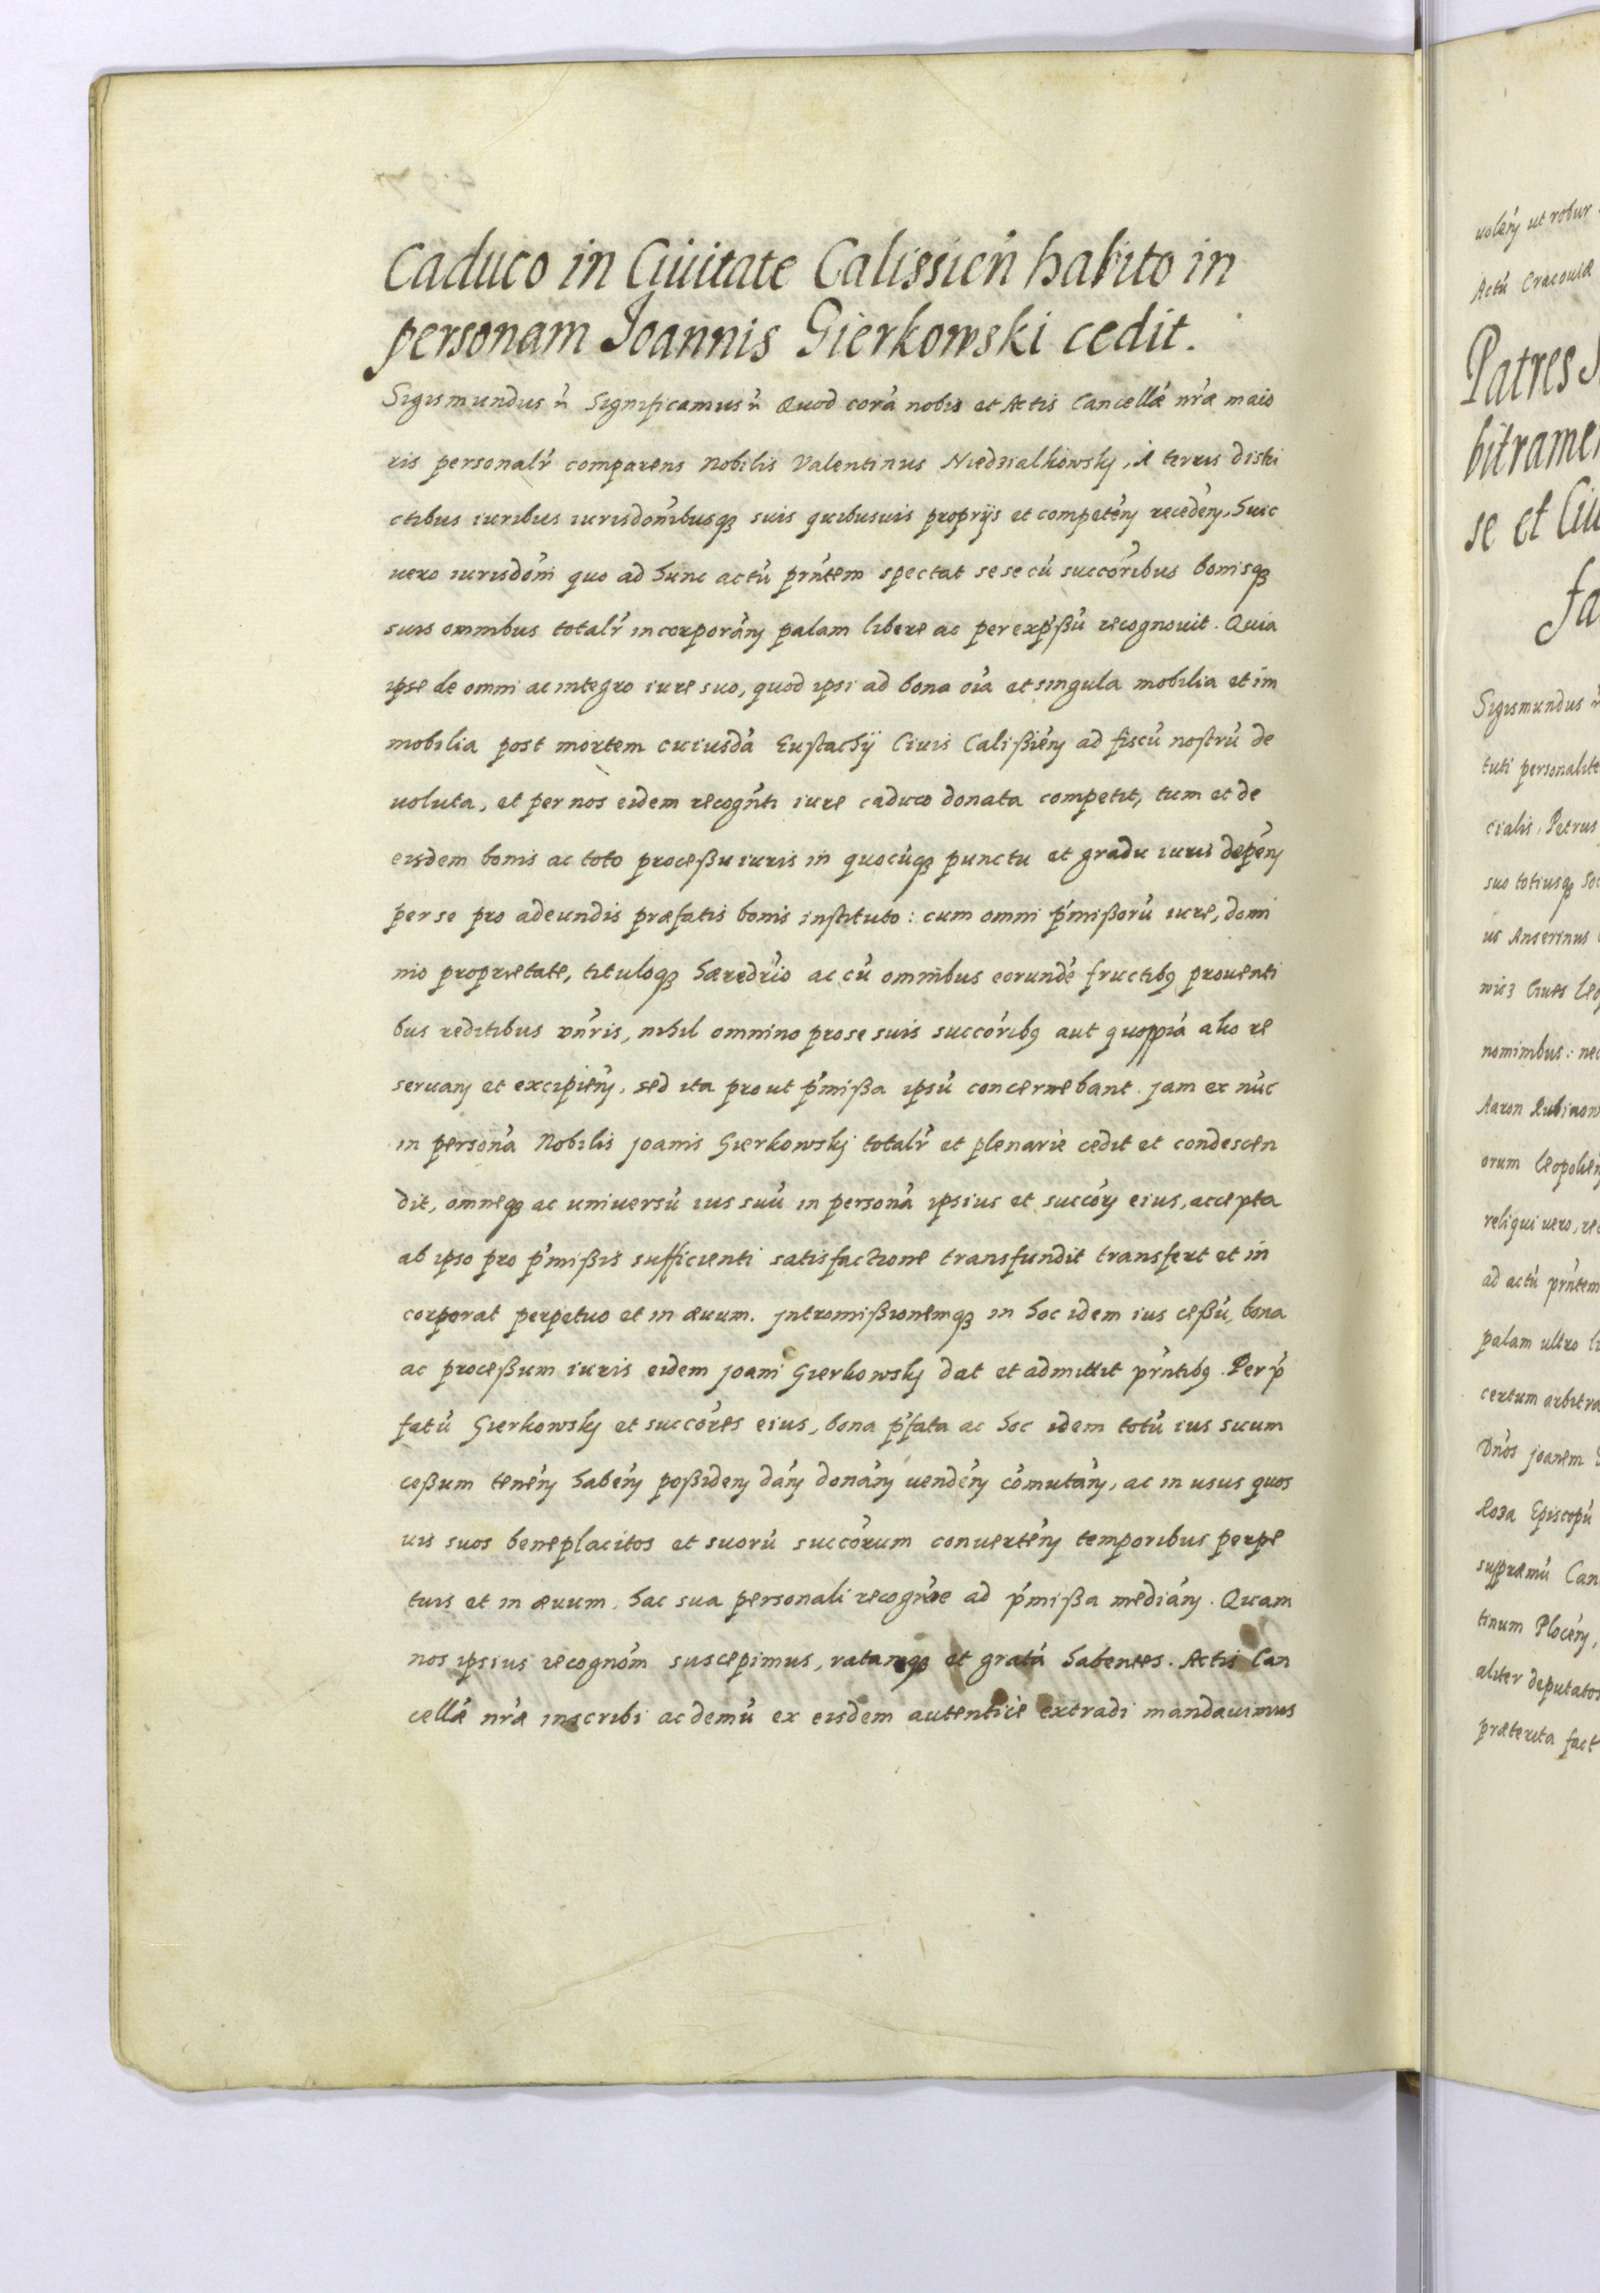 Caduco in Ciuitate Calissien̄ habito in
personam Joannis Gierkowski cedit.
Sigismundus n̄ Significamus n̄ Quod corā nobis et Actis Cancellæ nr̄æ maio
ris personalr̄ comparens Nobilis Valentinus Niedzialkowskj, A terris distri
ctibus iuribus iurisdōnibusqꝫ suis quibusuis proprijs et competēn recedēn, huic
uero iurisdōni quo ad hunc actū prn̄tem spectat sese cū succōribus bonisqꝫ
suis omnibus totalr̄ incorporān palam libere ac per exp̄ßū recognouit. Quia
ipse de omni ac integro iure suo, quod ipsi ad bona oīa et singula mobilia et im
mobilia post mortem cuiusdā Eustachÿ Ciuis Calißiēn ad fiscū nostrū de
uoluta, et per nos eidem recogn̄ti iure caduco donata competit, tum et de
eisdem bonis ac toto proceßu iuris in quocūqꝫ punctu et gradu iuris depēn
per se pro adeundis præfatis bonis instituto: cum omni p̄mißorū iure, domi
nio proprietate, tituloqꝫ hæredr̄io ac cū omnibus eorundē fructibꝫ prouenti
bus reditibus vn̄ris, nihil omnino pro se suis succōribꝫ aut quoppiā alio re
seruan et excipiēn, sed ita prout p̄mißa ipsū concernebant. jam ex nūc
in personā Nobilis joanis Gierkowskj totalr̄ et plenarie cedit et condescen
dit, omneqꝫ ac uniuersū ius suū in personā ipsius et succōrj eius, accepta
ab ipso pro p̄mißis sufficienti satisfactione transfundit transfert et in
corporat perpetuo et in æuum. jntromißionemqꝫ in hoc idem ius ceßū, bona
ac proceßum iuris eidem joani Gierkowskj dat et admittit prn̄tibꝫ. Per p̄
fatū Gierkowskj et succōres eius, bona p̄fata ac hoc idem totū ius suum
ceßum tenēn habēn poßiden dān donān uendēn cōmutān, ac in usus quos
uis suos beneplacitos et suorū succōrum conuertēn temporibus perpe
tuis et in æuum, hac sua personali recogn̄oe ad p̄mißa mediān. Quam
nos ipsius recognōm suscepimus, ratamqꝫ et gratā habentes. Actis Can
cellæ nr̄æ inscribi ac demū ex eisdem autenticè extradi mandauimus
uolēn ut robur
Actū Cracouiæ
Patres
bitrame
se et Ciu
fa
Sigismundus n̄
tuti personalite
cialis, Petrus
suo totiusqꝫ
us Anserinus
nomimbus: nec
orum leopoliēn
reliqui uero, re
ad actū prn̄tem
palam ultro li
certum arbitra
Dnōs joanem
Episcopū
suppræmū Can
tinum Plocēn,
aliter deputatos
præterita fact